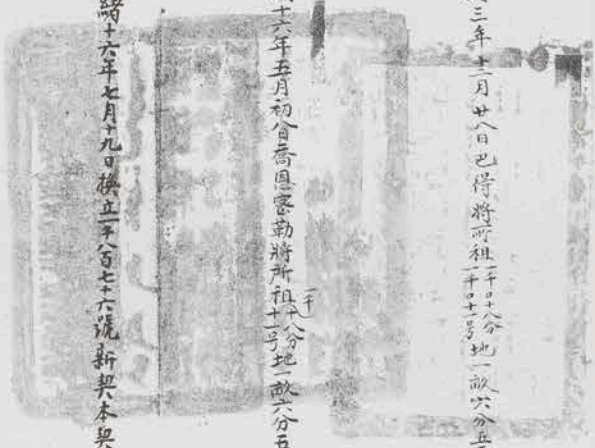 三年十二月廿八日巴得將所租一千〇十八分一千〇十一号地一畝六分五
十六年五月初八日喬恩密勒將所租一千十八分十一号地一畝六分五
緒十六年七月十九日換立一千八百七十六號新契本契